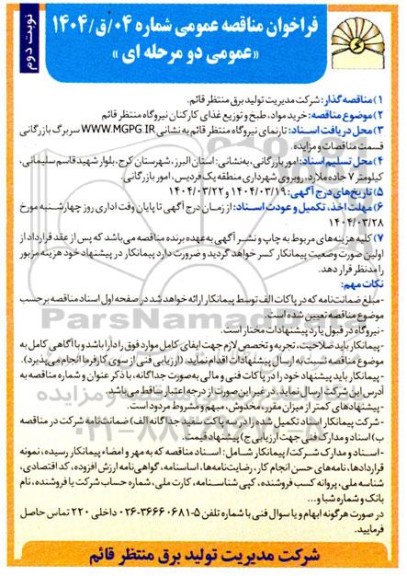 نوبت دوم
فراخوان مناقصه عمومی شماره ۰۴/ق/۱۴۰۴
«عمومی دو مرحله ای»
۱) مناقصه گذار: شرکت مدیریت تولید برق منتظر قائم.
۲) موضوع مناقصه: خرید مواد، طبخ و توزیع غذای کارکنان نیروگاه منتظر قائم
۳) محل دریافت اسناد: تارنمای نیروگاه منتظر قائم به نشانی WWW.MGPG.IR سربرگ بازرگانی
قسمت مناقصات و مزایده.
۴) محل تسلیم اسناد: امور بازرگانی، به نشانی: استان البرز، شهرستان کرج، بلوار شهید قاسم سلیمانی،
کیلومتر ۷ جاده ملارد، روبروی شهرداری منطقه یک فردیس، امور بازرگانی.
۵) تاریخ های درج آگهی: ۱۴۰۴/۰۳/۱۹ و ۱۴۰۴/۰۳/۲۲
۶) مهلت اخذ، تکمیل و عودت اسناد: از زمان درج آگهی تا پایان وقت اداری روز چهارشنبه مورخ
۱۴۰۴/۰۳/۲۸
۷) کلیه هزینه های مربوط به چاپ و نشر آگهی به عهده برنده مناقصه می باشد که پس از عقد قرارداد از
اولین صورت وضعیت پیمانکار کسر خواهد گردید و ضرورت دارد پیمانکار در پیشنهاد خود هزینه مزبور
را مدنظر قرار دهد.
نکات مهم:
-مبلغ ضمانت نامه که در پاکات الف توسط پیمانکار ارائه خواهد شد در صفحه اول اسناد مناقصه برحسب
موضوع مناقصه تعیین شده است.
-نیروگاه در قبول یا رد پیشنهادات مختار است.
-پیمانکار باید صلاحیت، تجربه و تخصص لازم جهت ایفای کامل موارد فوق را دارا باشد و با آگاهی کامل به
موضوع مناقصه نسبت به ارسال پیشنهادات اقدام نماید. (ارزیابی فنی از سوی کارفرما انجام می پذیرد).
-پیمانکار باید پیشنهاد خود را در پاکات فنی و مالی به صورت جداگانه، با ذکر عنوان و شماره مناقصه به
آدرس این شرکت ارسال نماید. در غیر این صورت از درجه اعتبار ساقط می باشد.
-پیشنهادهای کمتر از میزان مقرر، مخدوش، مبهم و مشروط مردود است.
-شرکت پیمانکار اسناد تکمیل شده را در سه پاکت پستی جداگانه الف) ضمانتنامه شرکت در مناقصه
ب) اسناد و مدارک فنی جهت ارزیابی ج) پیشنهاد قیمت.
-اسناد و مدارک شرکت/ پیمانکار شامل: اسناد مناقصه که به مهر و امضاء پیمانکار رسیده، نمونه
قراردادها، نامه های حسن انجام کار، رضایت نامه ها، اساسنامه، گواهی نامه ارزش افزوده، کد اقتصادی،
شناسه ملی، پروانه کسب فروشنده، کپی شناسنامه، کارت ملی، شماره حساب شرکت یا فروشنده، نام
بانک و شماره شبا و...
در صورت هرگونه ابهام و یا سوال فنی با شماره تلفن ۵-۳۶۶۶۰۶۸۱-۰۲۶ داخلی ۲۲۰ تماس حاصل
فرمایید.
شرکت مدیریت تولید برق منتظر قائم